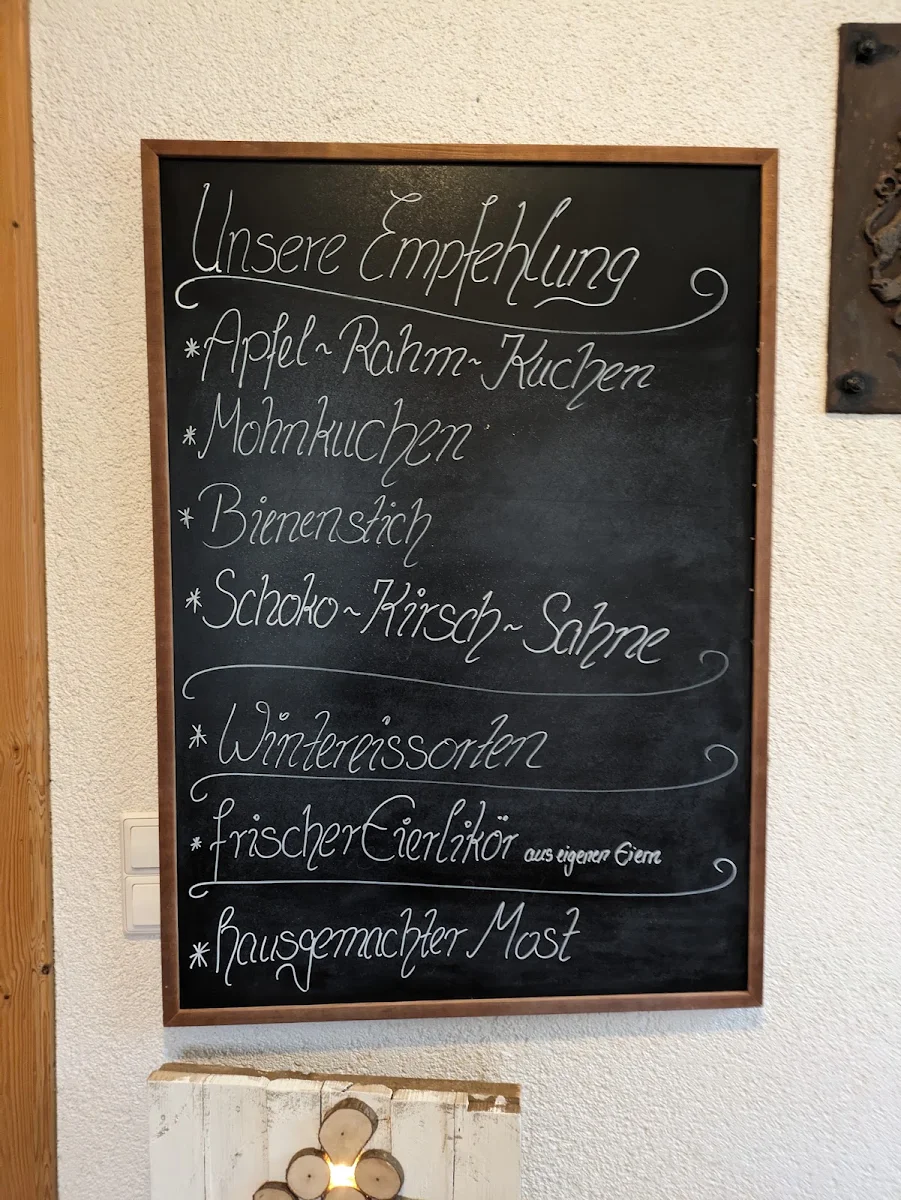 Unsere Empfehlung
*Apfel~Rahm~Kuchen
*Mohnkuchen
*Bienenstich
*Schoko~Kirsch~Sahne
*Wintereissorten
*frischer Eierlikör aus eigenen Eiern
*hausgemachter Most